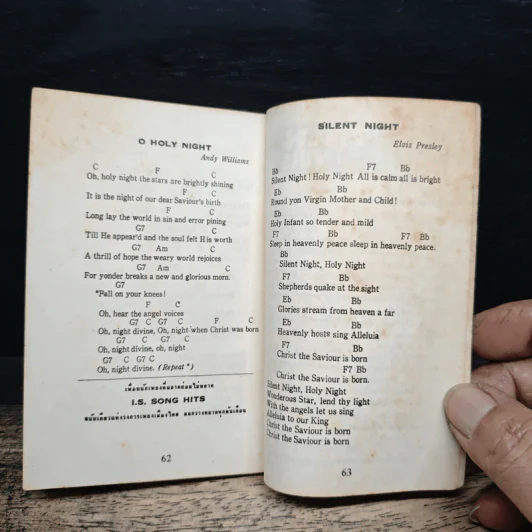 O HOLY NIGHT
Andy Williams
C F C
Oh, holy night the stars are brightly shining
F C
It is the night of our dear Saviour's birth
F C
Long lay the world in sin and error pining
G7 C
Till He appear'd and the soul felt His worth
G7 Am C
A thrill of hope the weary world rejoices
G7 Am C
For yonder breaks a new and glorious morn.
G7
*Fall on your knees!
F C
Oh, hear the angel voices
G7 C G7 C F C
Oh, night divine, Oh, night when Christ was born
G7 C G7 C
Oh, night divine, oh, night
G7 C G7 C
Oh, night divine. (Repeat*)
I.S. SONG HITS
62
SILENT NIGHT
Elvis Presley
Bb F7 Bb
Silent Night! Holy Night All is calm all is bright
Eb Bb
Round yon Virgin Mother and Child!
Eb Bb
Holy Infant so tender and mild
F7 Bb F7 Bb
Sleep in heavenly peace sleep in heavenly peace.
Bb
Silent Night, Holy Night
F7 Bb
Shepherds quake at the sight
Eb Bb
Glories stream from heaven a far
Eb Bb
Heavenly hosts sing Alleluia
F7 Bb
Christ the Saviour is born
F7 Bb
Christ the Saviour is born.
Silent Night, Holy Night
Wonderous Star, lend thy light
With the angels let us sing
Alleluia to our King
Christ the Saviour is born
Christ the Saviour is born
63